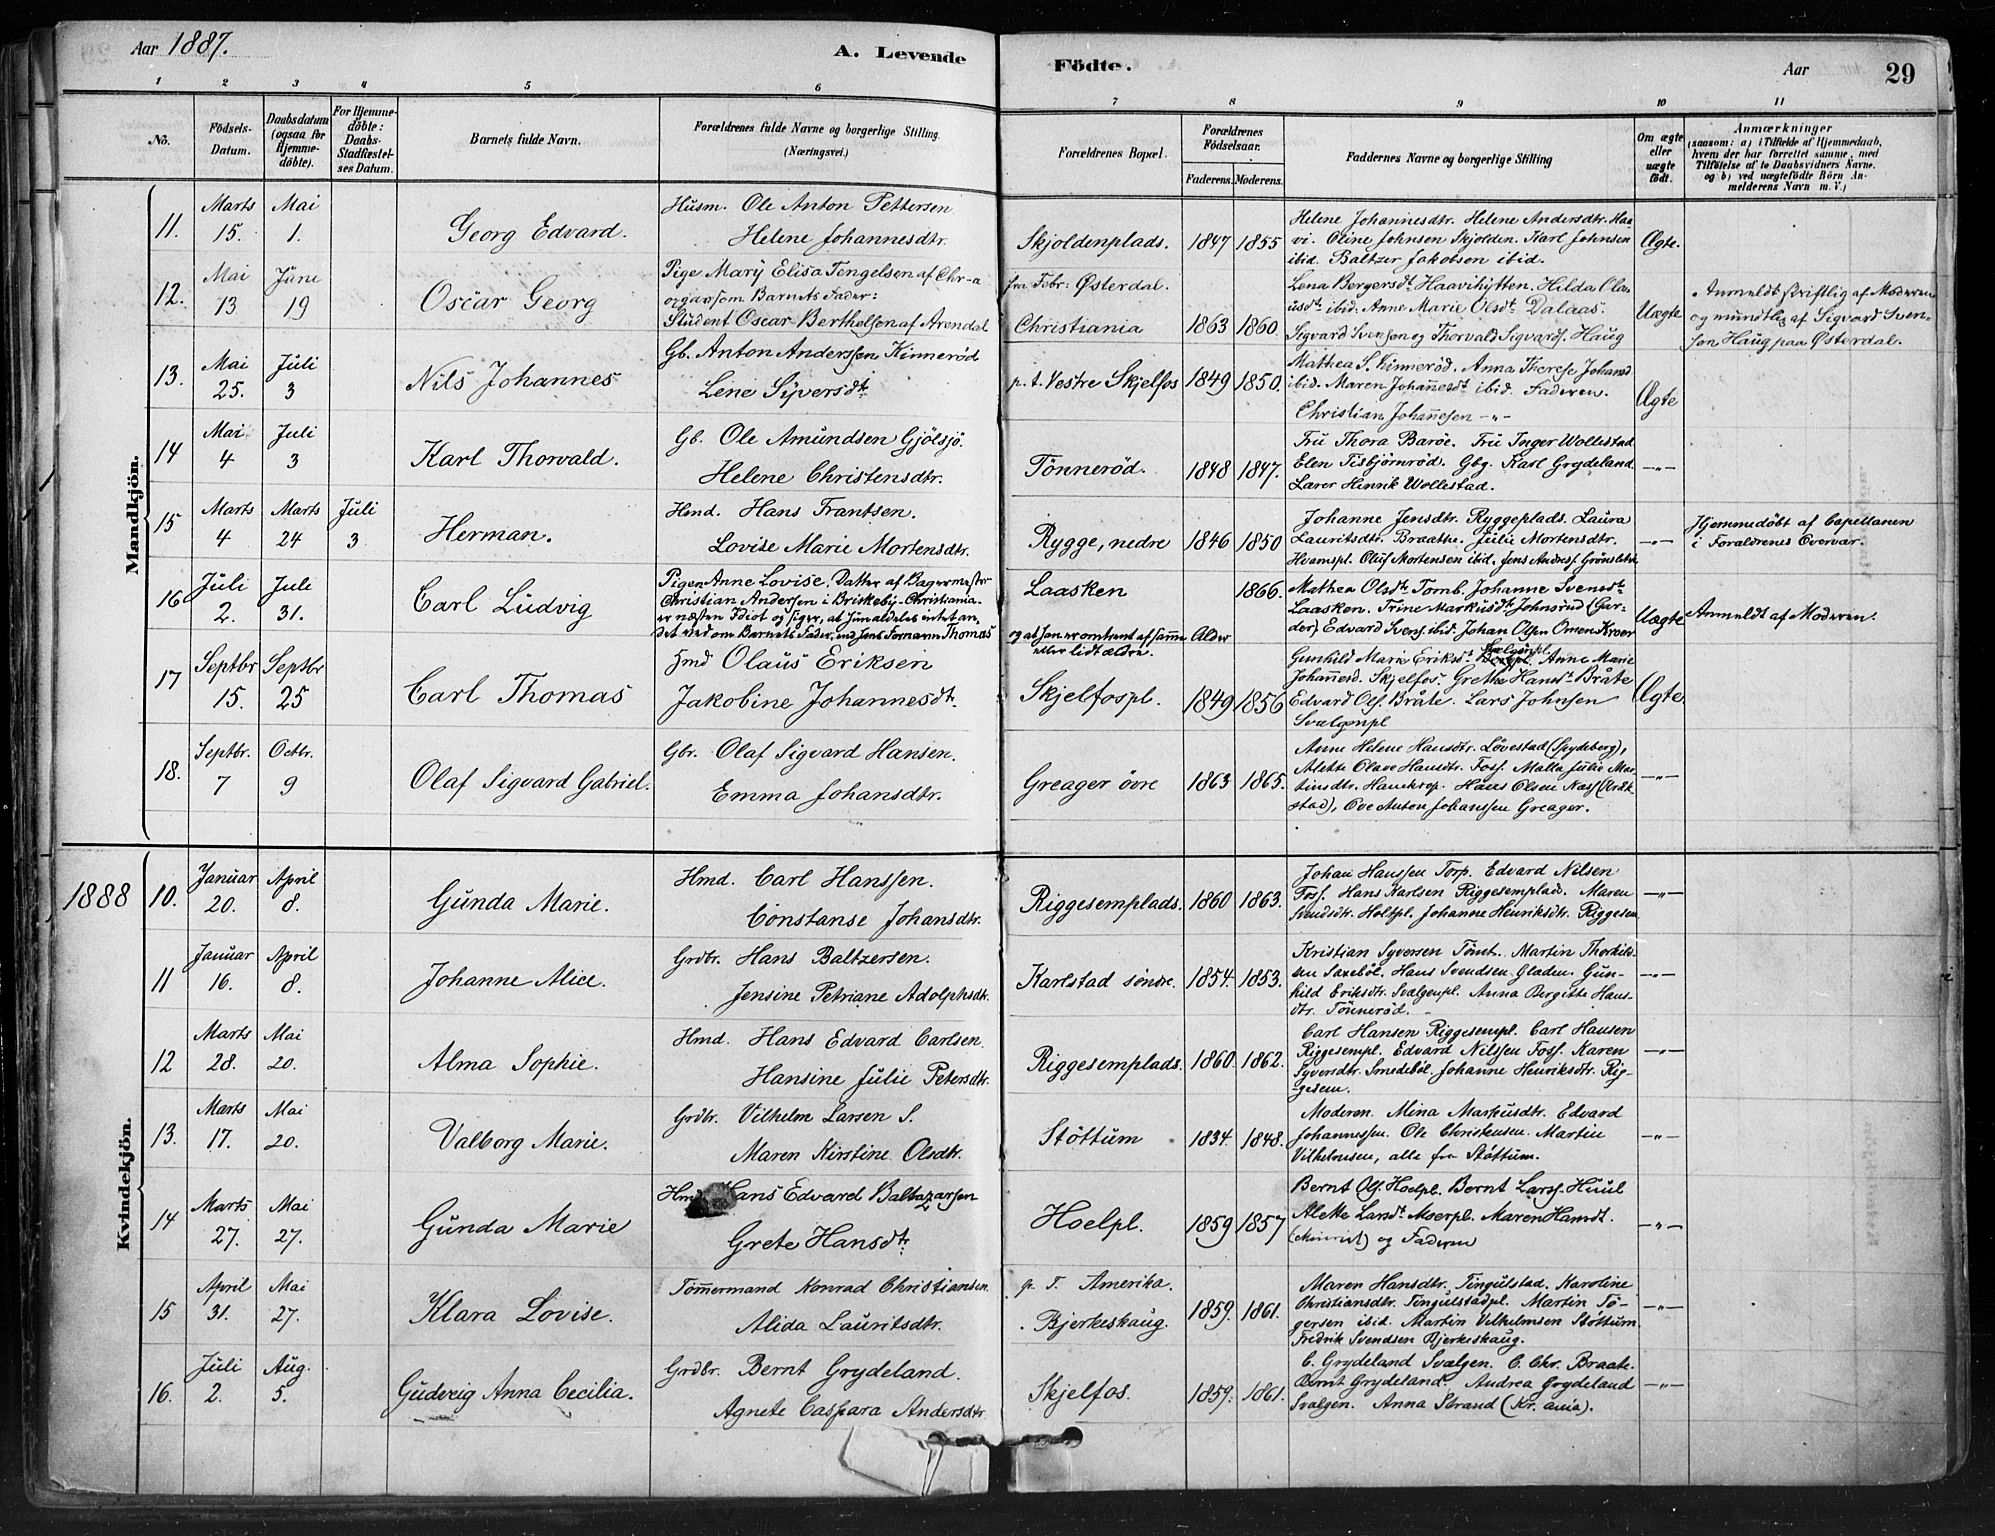 Aar 1887.
A. Levende
Födte.
Aar
29
1 2 3 4 5 6 7 8 9 10 11
No.
Födsels-Datum.
Daabsdatum (ogsaa for Hjemme-döbte).
For Hjemme-döbte: Daabs-Stadfæstel-ses Datum.
Barnets fulde Navn.
Forældrenes fulde Navne og borgerlige Stilling. (Næringsvei.)
Forældrenes Bopæl.
Forældrenes Födselsaar.
Faderens. Moderens.
Faddernes Navne og borgerlige Stilling
Om ægte eller uægte födt.
Anmærkninger
(saasom: a) i Tilfælde af Hjemmedaab,
hvem der har forrettet samme, med
Tilföielse af to Daabsvidners Navne,
og b) ved uægtefödte Börn An-
melderens Navn m. V.)
Mandkjön.
11. Marts 15. Mai 1. Georg Edvard.
Husm. Ole Anton Pettersen
Helene Johannesdtr.
Skjoldenplads. 1847 1855
Helene Johannesdtr. Helene Andersdtr. Haa-
vi. Oline Johnsen Skjolden. Karl Johnsen
ibid. Baltzer Jakobsen ibid.
Ægte.
12. Mai 13. June 19 Oscar Georg
Pige Mary Elisa Tengelsen af Chr-a
organsom Barnets Fader:
Student Oscar Berthelsen af Arendal
fra Febr: Østerdal.
Christiania 1863 1860.
Lena Bergersdt. Haavihytten. Hilda Ola-
usdt. ibid. Anne Marie Olsdt. Dalaas.
Sigvard Svensen og Thorvald Sigvards. Haug
Uægte
Anmeldt skriftlig af Moderen
og mundtlig af Sigvard Sven-
sen Haug paa Østerdal.
13. Mai 25. Juli 3 Nils Johannes
Gb. Anton Anderssen Kinnerød
Lene Syversdt.
p. t. Vestre Skjelfos 1849 1850.
Mathea S. Kinnerød. Anna Therese Johansd
ibid. Maren Johannesdt. ibid. Faderen.
Christian Johannesen -"-
Ægte
14 Mai 4 Juli 3 Karl Thorvald.
Gb. Ole Amundsen Gjølsjø.
Helene Christensdtr.
Tønnerød. 1848 1847.
Fru Thora Barøe. Fru Inger Wollestad
Elen Tisbjørnrød. Gbg. Karl Grydeland
Lærer Henrik Wollestad.
-"-
15 Marts 4 Marts 24 Juli 3 Herman.
Hmd. Hans Frantsen.
Lovise Marie Mortensdtr.
Rygge, nedre 1846 1850
Johanne Jensdtr. Ryggeplads. Laura
Lauritsdtr. Braathe. Julie Mortensdtr.
Hvamspl. Oluf Mortensen ibid. Jens Andreas. Grønsleth
-"-
Hjemmedøbt af Capellanen
i Forældrenes Overvær.
16 Juli 2. Jule 31. Carl Ludvig
Pigen Anne Lovise, Datter af Bagermester
Christian Andersen i Briskeby-Christiania-
er næsten Idiot og siger, at hun aldeles intet an-
det ved om Barnets Fader, end hans Fornavn Thomas
Laasken 1866.
og at han er omtrent af samme Alder
eller lidt ældre.
Mathea Olsdt. Tomb. Johanne Svensdt.
Laasken. Trine Markusdt. Johnsrud (Gar-
der) Edvard Svens. ibid. Johan Olsen Omen Kroer
Uægte
Anmeldt af Moderen.
17 Septbr 15. Septbr 25 Carl Thomas
Hmd Olaus Eriksen
Jakobine Johannesdt.
Skjelfospl. 1849 1856
Gunhild Marie Eriksdt. Svalgenpl. Anne Marie
Johannesd. Skjelfos. Grethe Hansdt. Bråte
Edvard Ols. Bråte. Lars Johnsen
Svalgenpl
Ægte.
18. Septbr. 7 Octbr. 9 Olaf Sigvard Gabriel.
Gbr. Olaf Sigvard Hansen.
Emma Johansdtr.
Greager øvre 1863 1865.
Anne Helene Hansdtr. Løvestad (Spydeberg),
Alette Olave Hansdtr. Foss. Malla Julie Mar-
tinsdtr. Haneknop. Hans Olsen Næss (Kråk-
stad), Ove Anton Johanssen Greager.
-"-
1888
Kvindekjön.
10. Januar 20. April 8. Gunda Marie.
Hmd. Carl Hanssen.
Constanse Johansdtr.
Riggesemplads. 1860 1863.
Johan Hanssen Torp. Edvard Nilsen
Foss. Hans Karlsen Riggesemplad. Maren
Svendsdtr. Holtpl. Johanne Henriksdtr. Riggesem
-"-
11 Januar 16. April 8. Johanne Alice.
Grdbr. Hans Baltzersen.
Jensine Petriane Adolphsdtr.
Karlstad søndre. 1854. 1853.
Kristian Syversen Tømt. Martin Thorkild-
sen Saxebøl. Hans Svendsen Gladen. Gun-
hild Eriksdtr. Svalgenpl. Anna Bergitte Hans-
dtr. Tønnerød.
-"-
12 Marts 28. Mai 20. Alma Sophie.
Hmd. Hans Edvard Carlsen.
Hansine Julie Petersdtr.
Riggesemplads. 1860. 1862.
Carl Hansen Riggesempl. Carl Hansen
Riggesempl. Edvard Nilssen Foss. Karen
Syversdtr. Smedebøl. Johanne Henriksdtr. Rig-
gesem.
-"-
13. Marts 17. Mai 20. Valborg Marie.
Grdbr. Vilhelm Larsen S.
Maren Kirstine Olsdtr.
Støttum 1834. 1848.
Moderen. Mina Markusdtr. Edvard
Johannessen. Ole Christensen. Martin
Vilhelmsen, alle fra Støttum.
-"-
14 Marts 27. Mai 27. Gunda Marie
Hmd Hans Edvard Baltazarsen
Grete Hansdtr.
Hoelpl. 1859 1857
Bernt Ols. Hoelpl. Bernt Larss. Huul
Alette Larsdt. Moerpl. Maren Hansdt.
og Faderen
-"-
15 April 31. Mai 27. Klara Lovise.
Tømmermand Konrad Christiansen.
Alida Lauritsdtr.
p. T. Amerika.
Bjerkeskaug. 1859. 1861.
Maren Hansdtr. Tingulstad. Karoline
Christiansdtr. Tingulstadpl. Martin Tø-
gersen ibid. Martin Vilhelmsen Støttum
Fredrik Svendsen Bjerkeskaug.
-"-
16. Juli 2. Aug. 5. Gudveig Anna Cecilia.
Grdbr. Bernt Grydeland.
Agnete Caspara Andersdtr
Skjelfos. 1859. 1861.
C. Grydeland Svalgen. C. Chr. Braate.
Bernt Grydeland. Andrea Grydeland
Svalgen. Anna Strand (Kr. ania).
-"-